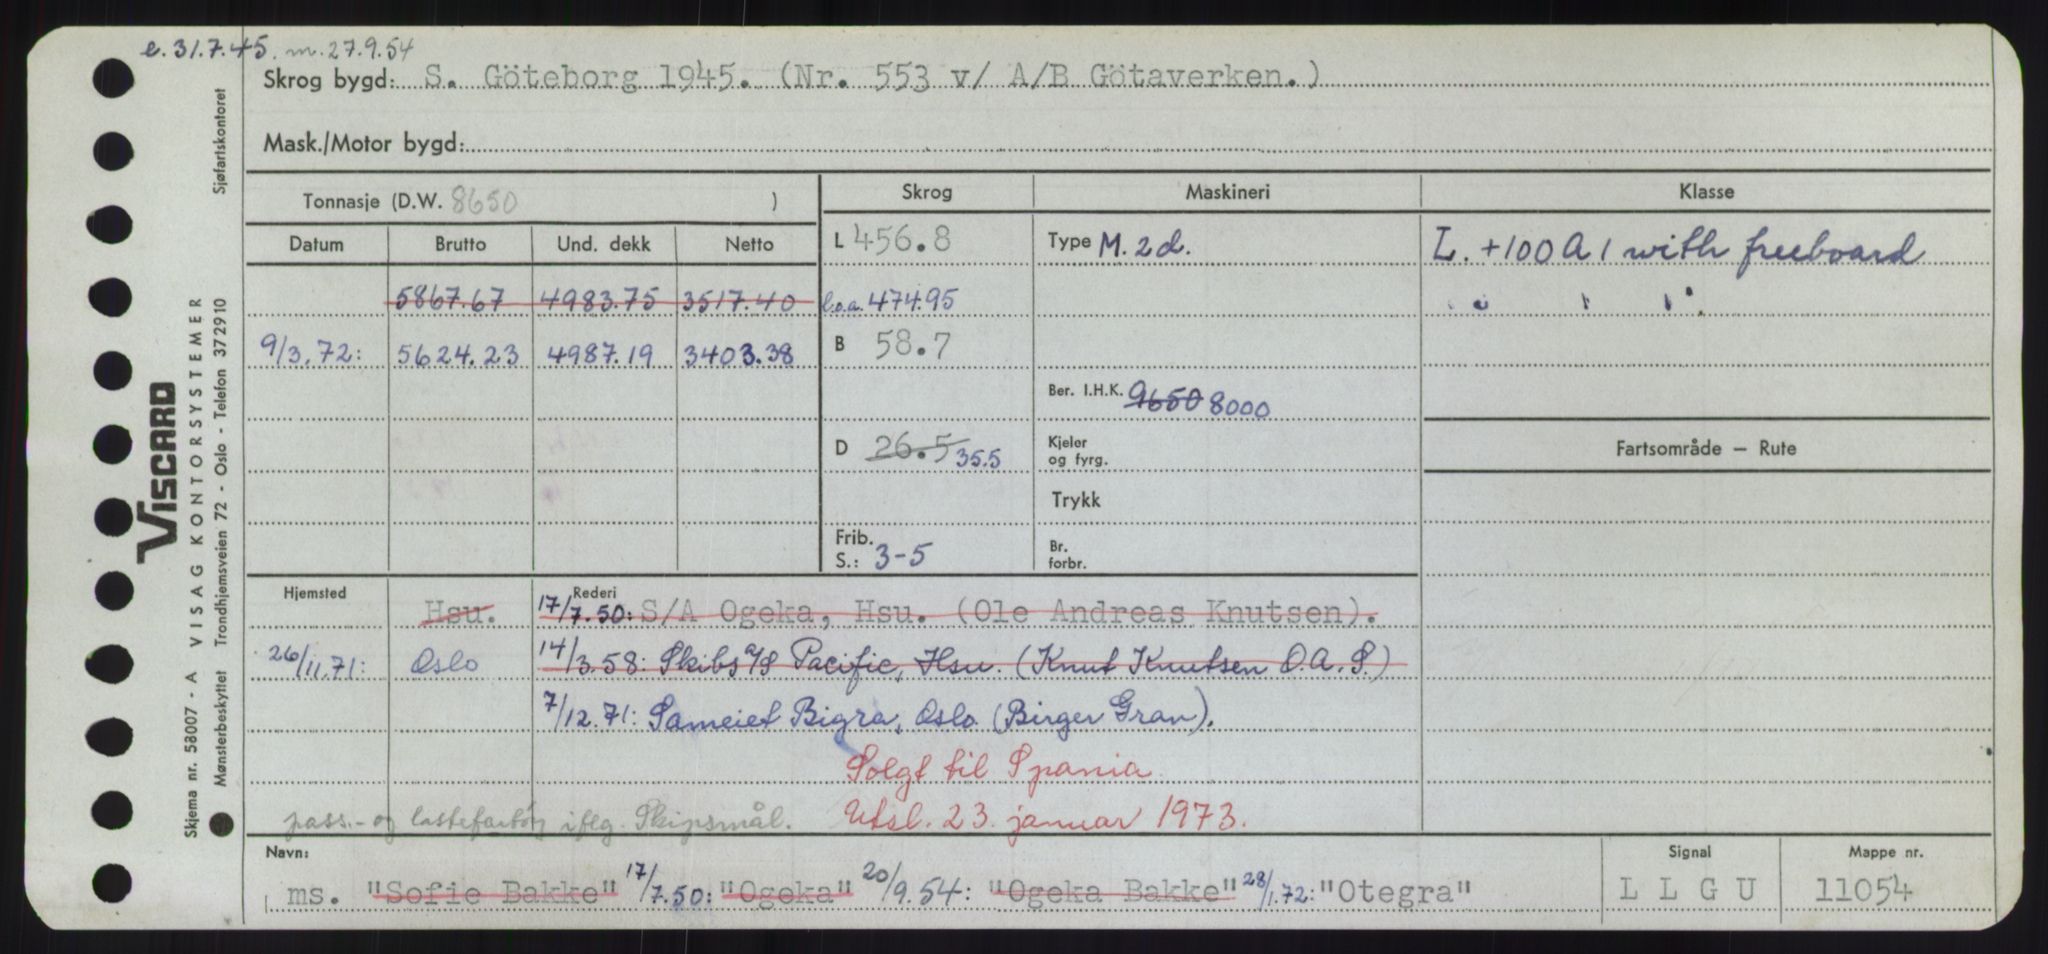 e. 31.7.45. m. 27.9.54
Skrog bygd: S. Göteborg 1945. (Nr. 553 v/ A/B Götaverken.)
Mask./Motor bygd:
Tonnasje (D.W. 8650 )
Skrog Maskineri Klasse
Datum Brutto Und. dekk Netto
L 456.8 Type M. 2d. L. +100 A 1 with freeboard
5867.67 4983.75 3517.40 l.o.a. 474.95
" " ".
9/3.72: 5624.23 4987.19 3403.38 B 58.7
Ber. I.H.K. 9650 8000
D 26.5 35.5 Kjeler og fyrg. Fartsområde — Rute
Trykk
Frib. S.: 3-5 Br. forbr.
Hjemsted Hsu. Rederi 17/7.50: S/A Ogeka, Hsu. (Ole Andreas Knutsen).
26/11.71: Oslo 14/3.58: Skibs a/s Pacific, Hsu. (Knut Knutsen O.A.S.)
7/12.71: Sameiet Bigra, Oslo. (Birger Gran).
Solgt til Spania
pass.- og lastefartøy iflg. Skipsmål. Utsl. 23. januar 1973.
Navn: Signal Mappe nr.
ms. "Sofie Bakke" 17/7.50: "Ogeka" 20/9.54: "Ogeka Bakke" 28/1.72: "Otegra" L L G U 11054
Skjema nr. 58007 - A VISAG KONTORSYSTEMER
VISCARD
Mønsterbeskyttet Trondhjemsveien 72 - Oslo - Telefon 372910 Sjøfartskontoret